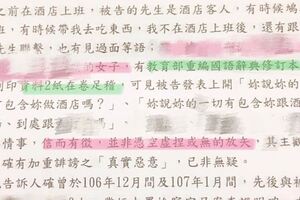 之前在酒店上班，被告的先生是酒店客人，有時候
班，有時候帶我去吃東西，我不在酒店上班後，還有跟
先生聯繫，也有見過面等語；
的女子，有教育部重編國語辭典修訂本
列印資料2紙在卷足稽，可見被告發表上開「妳說妳的
包含妳做酒店嗎？」、「妳說妳的一切有包含妳
、到處跟
情事，信而有徵，並非憑空虛捏或無的放矢，其主觀
確有加重誹謗之「真實惡意」，已非無疑。
告訴人確曾於106年12月間及107年1月間，先後與